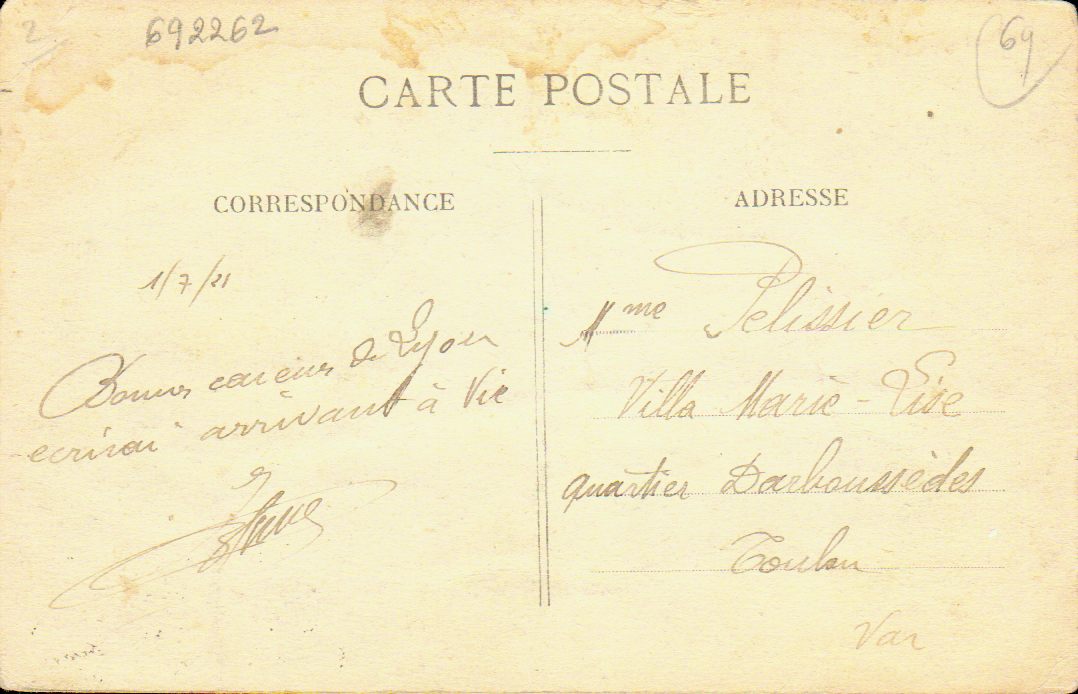 2
692262
69
CARTE POSTALE
CORRESPONDANCE
ADRESSE
1/7/21
Bonnes de Lyon
ecrirai arrivant à Vic
Mme Pelissier
Villa Marie-Lise
quartier Darboussèdes
Toulon
Var